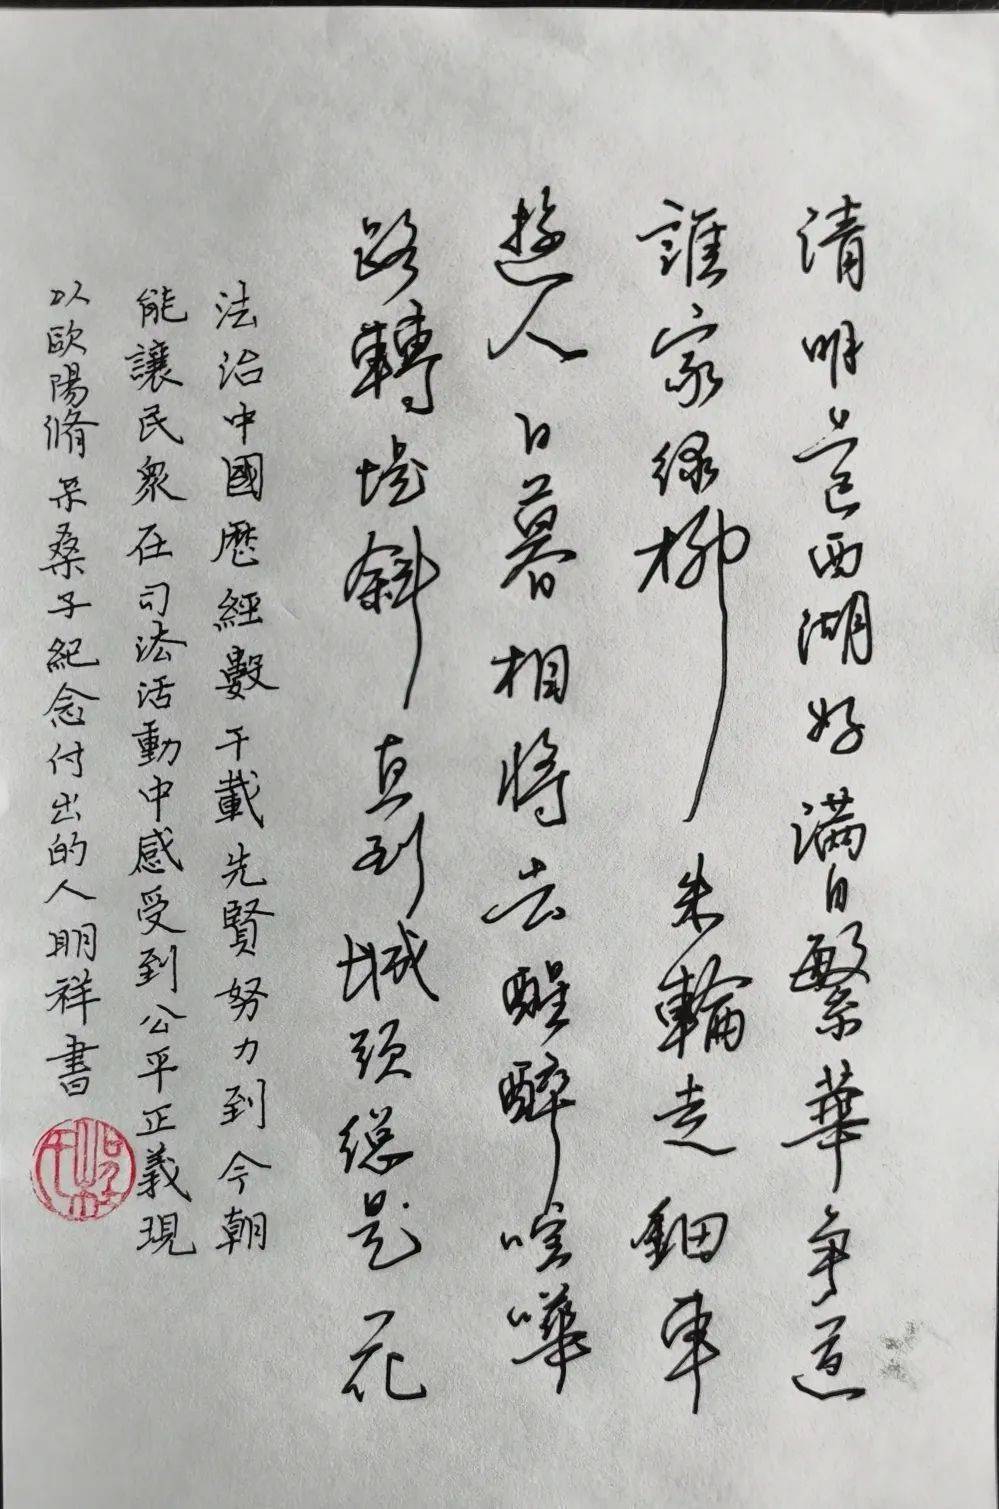 清明上巳西湖好满目繁華争道
誰家綠柳朱輪走鈿車
遊人日暮相將去醒醉喧嘩
路轉堤斜直到城頭總是花
法治中國歷經數千載先賢努力到今朝
能讓民衆在司法活動中感受到公平正義現
以歐陽脩采桑子紀念付出的人明祥書